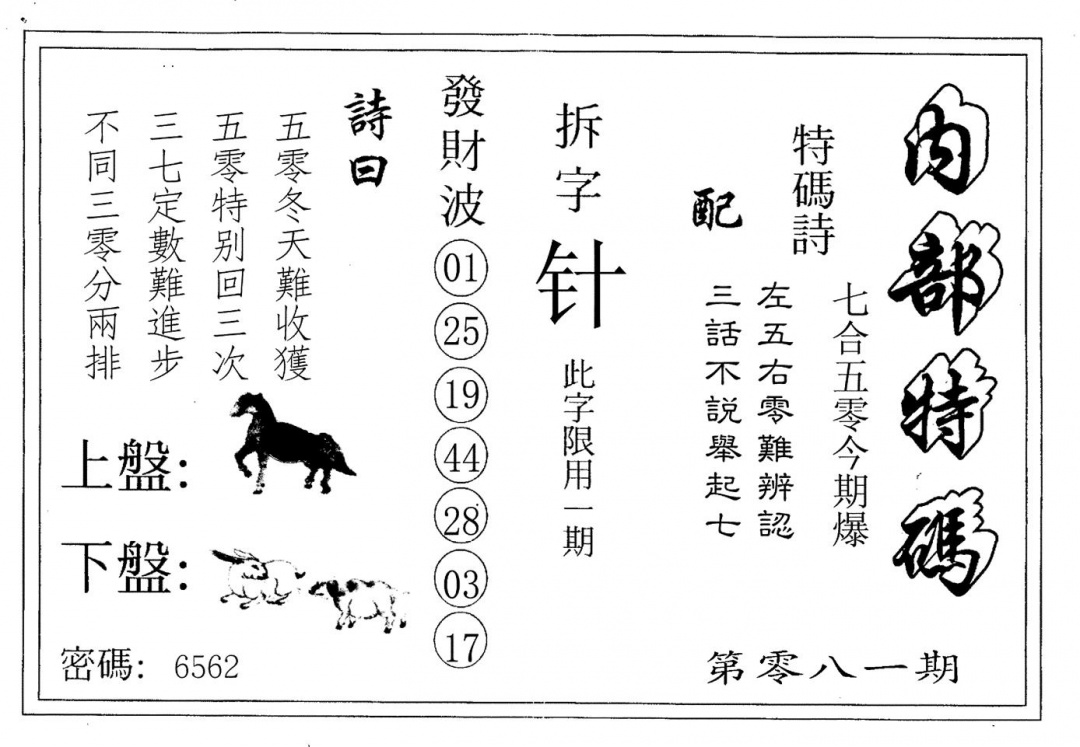 內部特碼
特碼詩
七合五零今期爆
配
左五右零難辨認
三話不説舉起七
第零八一期
拆字
针
此字限用一期
發財波
01
25
19
44
28
03
17
詩曰
五零冬天難收獲
五零特别回三次
三七定數難進步
不同三零分兩排
上盤：
下盤：
密碼：6562